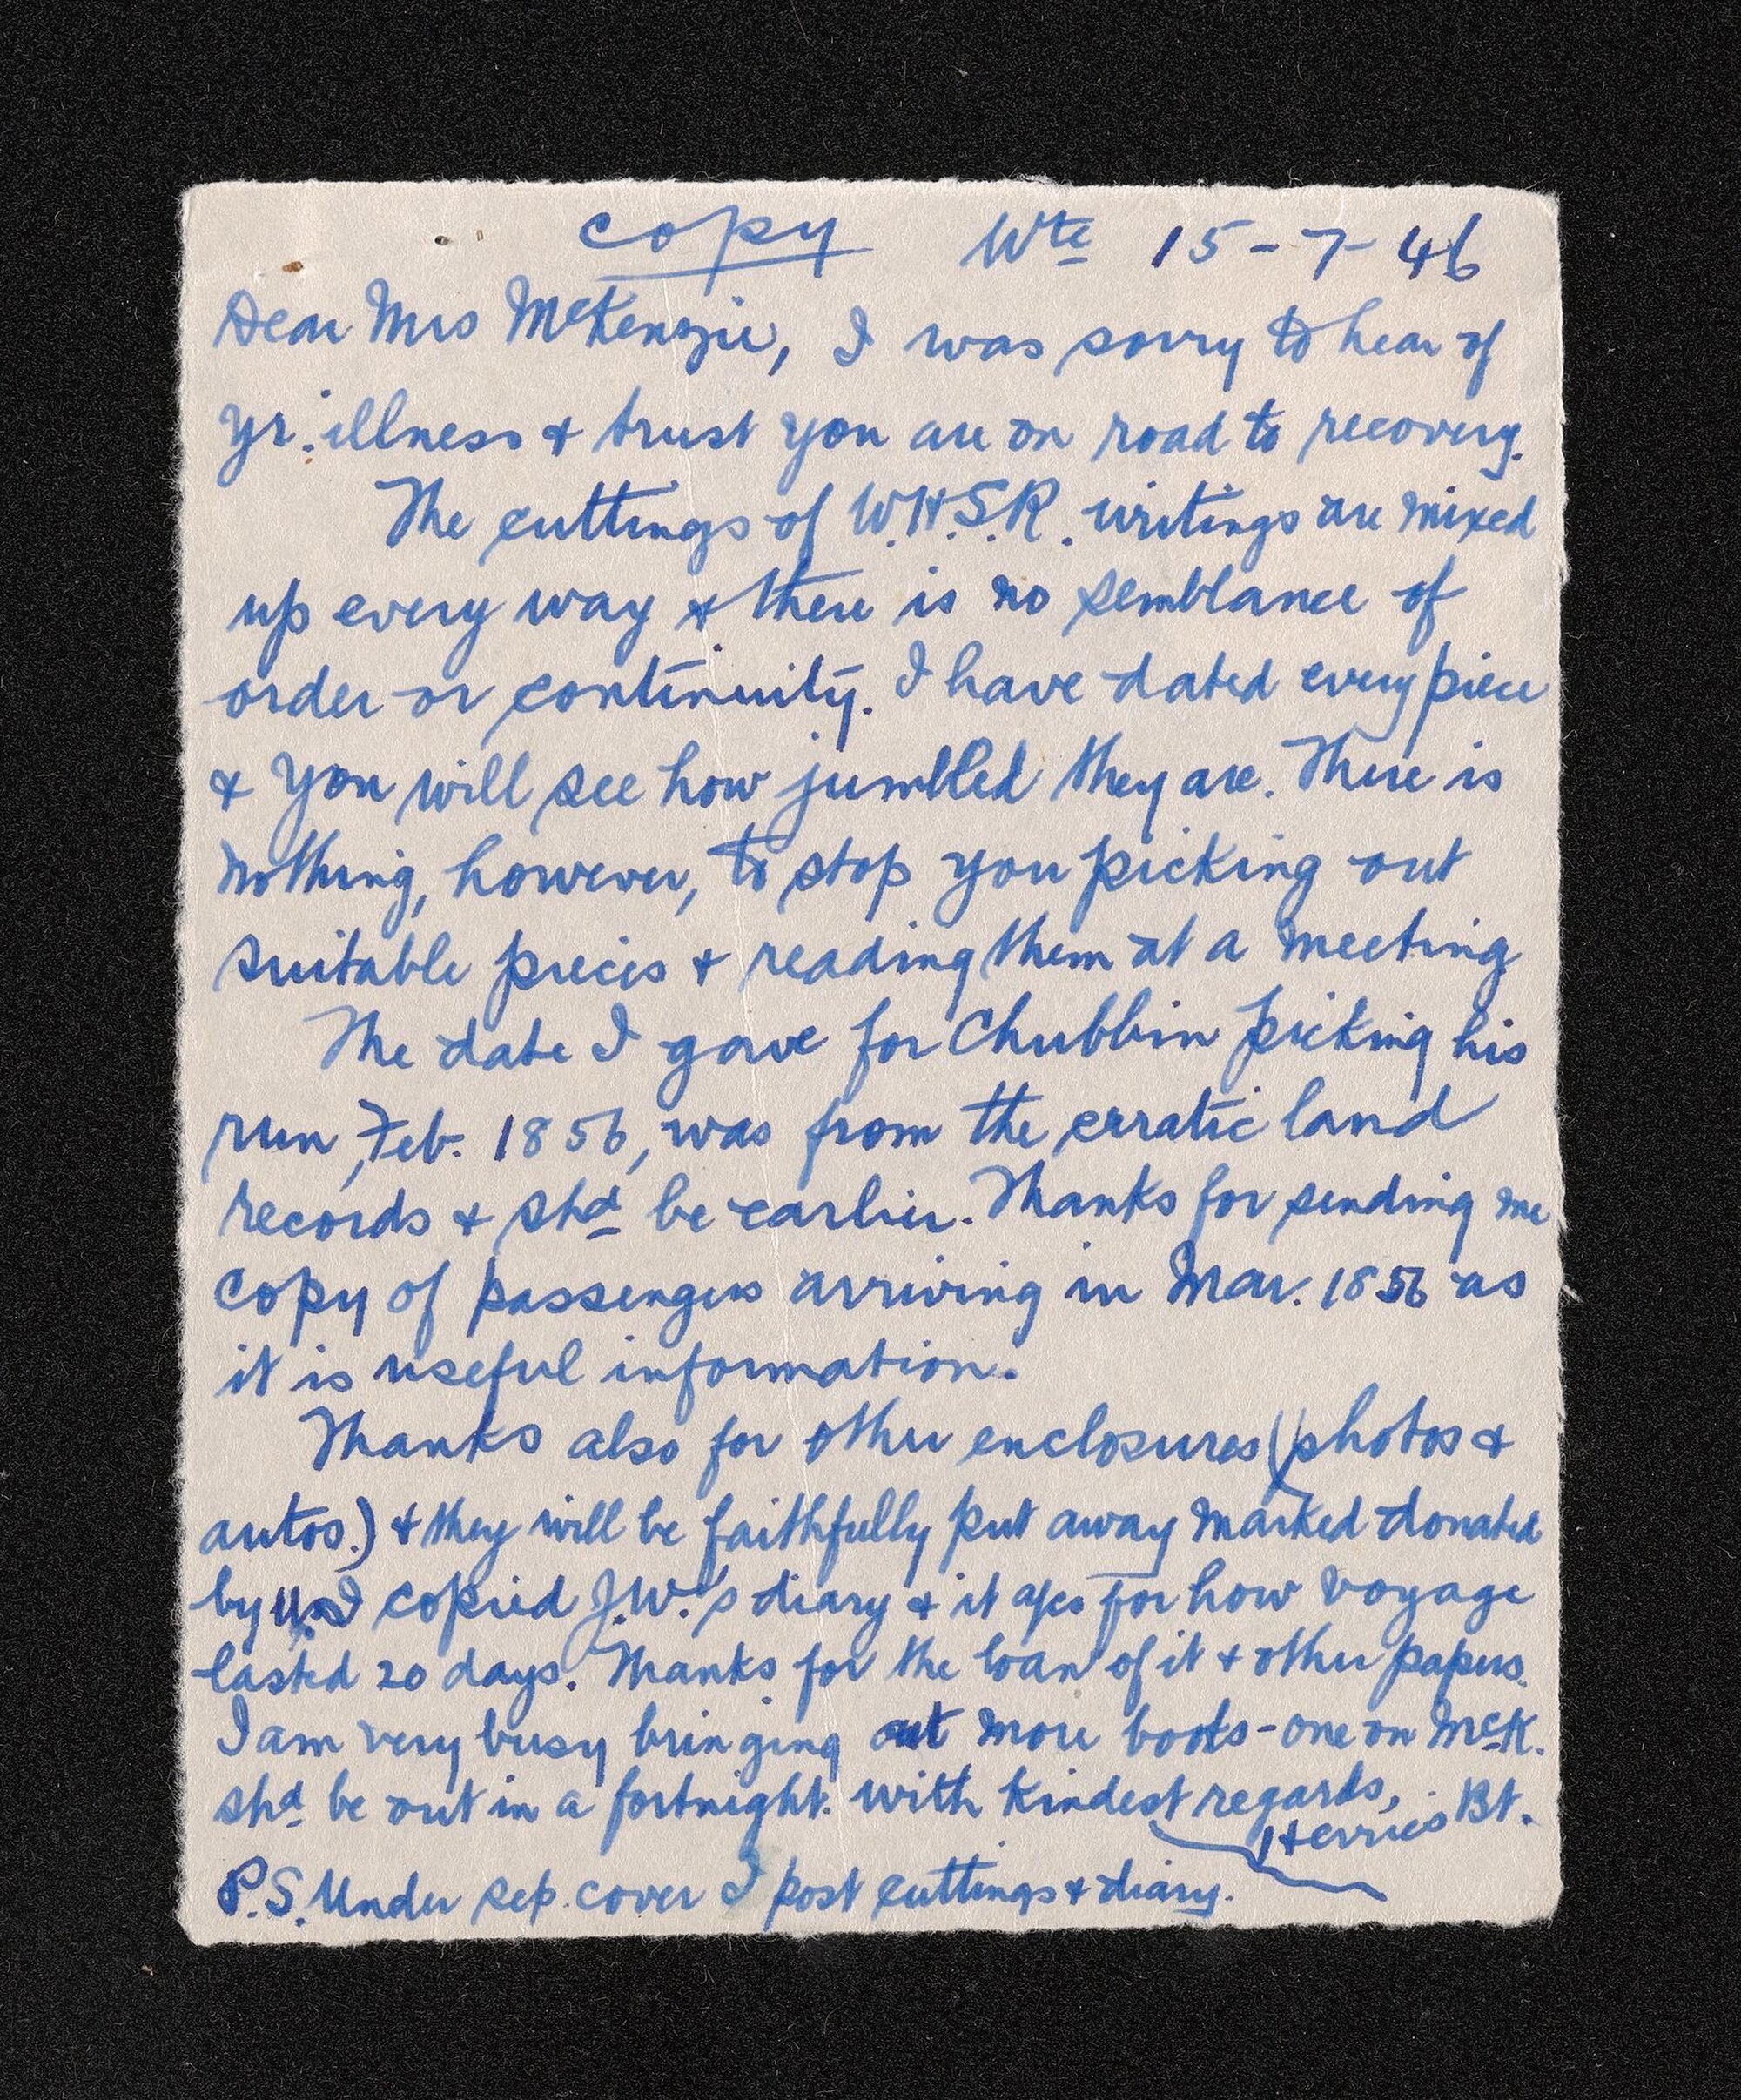 copy Wte 15-7-46
Dear Mrs McKenzie, I was sorry to hear of
yr. illness & trust you are on road to recovery.
The cuttings of W.H.S.R. writings are mixed
up every way & there is no semblance of
order or continuity. I have dated every piece
& you will see how jumbled they are. There is
nothing, however, to stop you picking out
suitable pieces & reading them at a meeting
The date I gave for Chubbin picking his
run, Feb. 1856, was from the erratic land
records & shd be earlier. Thanks for sending me
copy of passengers arriving in Mar. 1856 as
it is useful information.
Thanks also for other enclosures (photos &
autos.) & they will be faithfully put away marked donated
by I copied J.W.'s diary & it for how voyage
lasted 20 days. Thanks for the loan of it & other papers.
I am very busy bringing out more books - one on McK.
shd be out in a fortnight. with kindest regards,
Herries Bt.
P.S. Under sep. cover I post cuttings & diary.